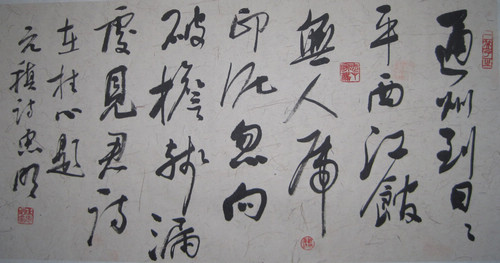 通州到日々
平西江館
無人虎
印泥忽向
破檐殘漏
處見君詩
在柱心題
元稹詩忠明